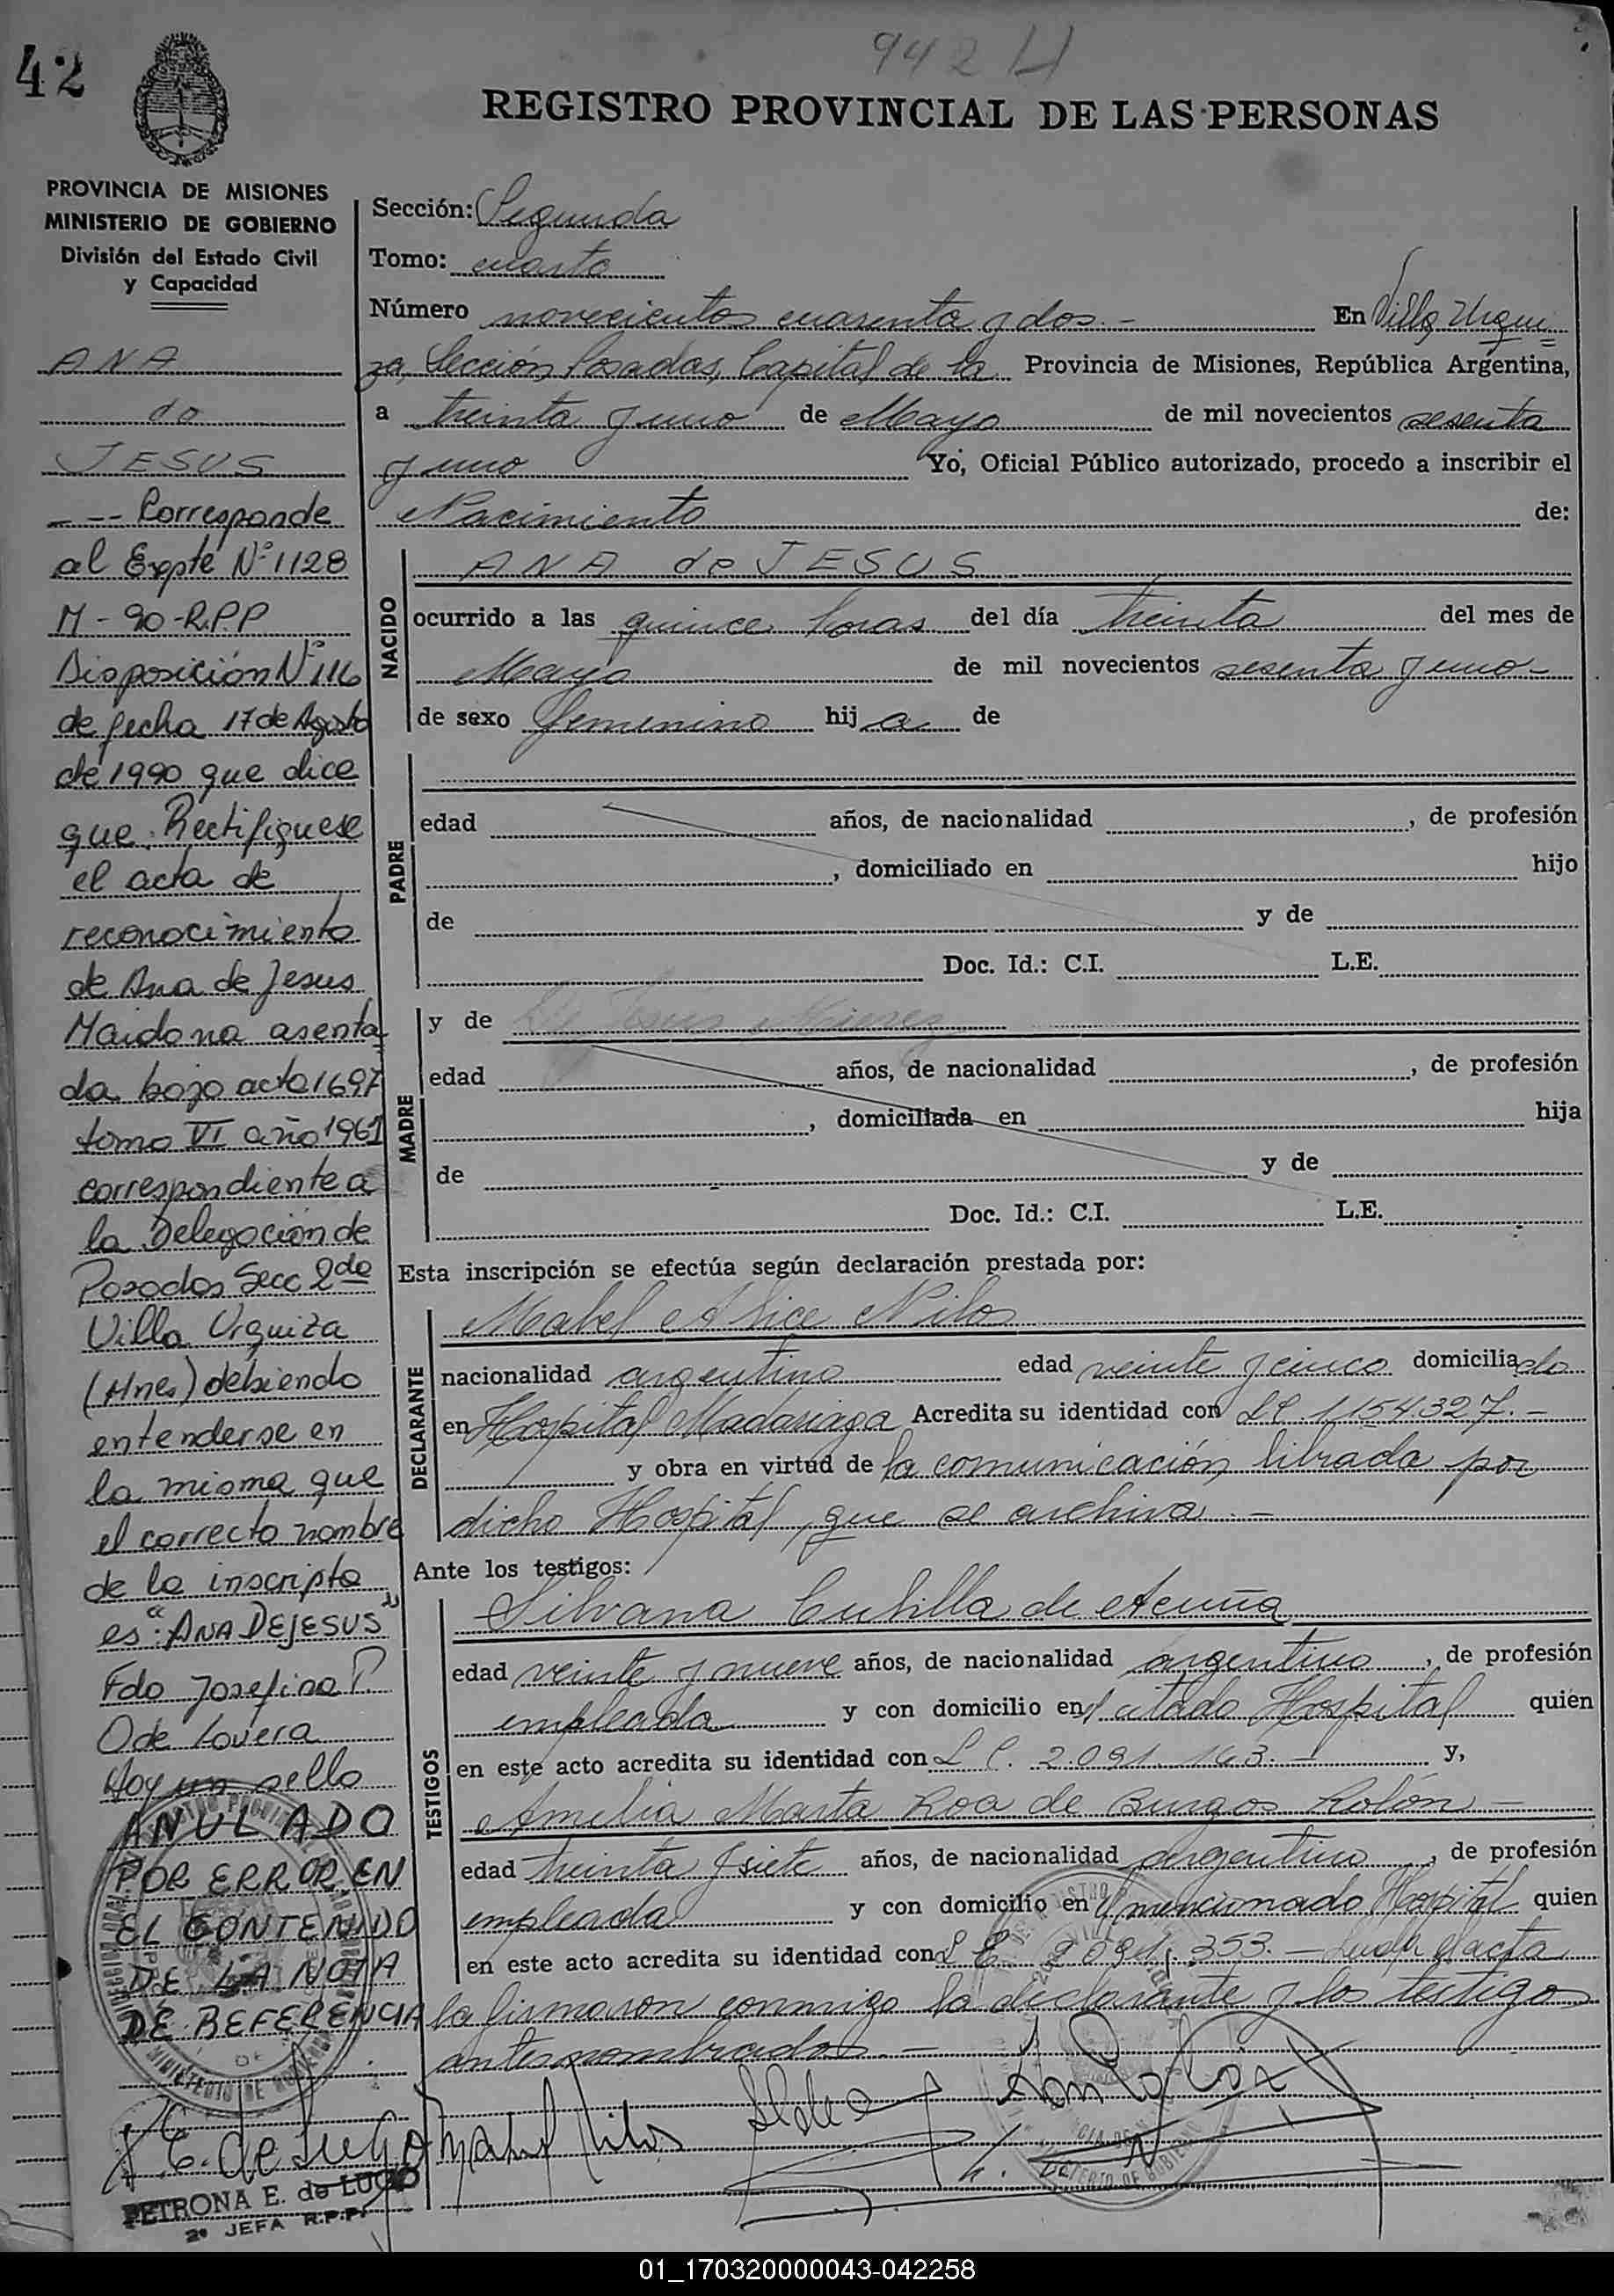 42
942 H
REGISTRO PROVINCIAL DE LAS PERSONAS
PROVINCIA DE MISIONES
MINISTERIO DE GOBIERNO
División del Estado Civil
y Capacidad
ANA
de
JESUS
--- Corresponde
al Expte Nº 1128
M - 90 - R.P.P
Disposición Nº 116
de fecha 17 de Agosto
de 1990 que dice
que: Rectifiquese
el acta de
reconocimiento
de Ana de Jesus
Maidana asenta
da bajo acta 1697
tomo VI año 1961
correspondiente a
la Delegación de
Posadas Secc 2da
Villa Urquiza
(Mnes) debiendo
entenderse en
la misma que
el correcto nombre
de la inscripta
es: "ANA DE JESUS"
Fdo Josefina P.
O de Lovera
Hay un sello
ANULADO
POR ERROR EN
EL CONTENIDO
DE LA NOTA
DE REFERENCIA
PETRONA E. de LUGO
2º JEFA R.P.P.
Sección: Segunda
Tomo: cuarto
Número novecientos cuarenta y dos.- En Villa Urqui
za, Sección Posadas, Capital de la Provincia de Misiones, República Argentina,
a treinta y uno de Mayo de mil novecientos sesenta
y uno Yo, Oficial Público autorizado, procedo a inscribir el
Nacimiento de:
NACIDO
ANA de JESUS
ocurrido a las quince horas del día treinta del mes de
Mayo de mil novecientos sesenta y uno-
de sexo femenino hija de
PADRE
edad años, de nacionalidad , de profesión
, domiciliado en hijo
de y de
Doc. Id.: C.I. L.E.
MADRE
y de
edad años, de nacionalidad , de profesión
, domiciliada en hija
de y de
Doc. Id.: C.I. L.E.
Esta inscripción se efectúa según declaración prestada por:
DECLARANTE
Mabel Alice Nilos
nacionalidad argentina edad veinte y cinco domiciliada
en Hospital Madariaga Acredita su identidad con LC 1.154.327.-
y obra en virtud de la comunicación librada por
dicho Hospital, que se archiva.-
Ante los testigos:
TESTIGOS
Silvana Cubilla de Acuña
edad veinte y nueve años, de nacionalidad argentina, de profesión
empleada y con domicilio en el citado Hospital quien
en este acto acredita su identidad con L C. 2.091.163.- y,
Amelia Marta Roa de Burgos Rolón -
edad treinta y siete años, de nacionalidad argentina, de profesión
empleada y con domicilio en el mencionado Hospital quien
en este acto acredita su identidad con L C 2091.353.- Leída el acta
la firmaron conmigo la declarante y los testigos
antesnombrados.-
01_170320000043-042258